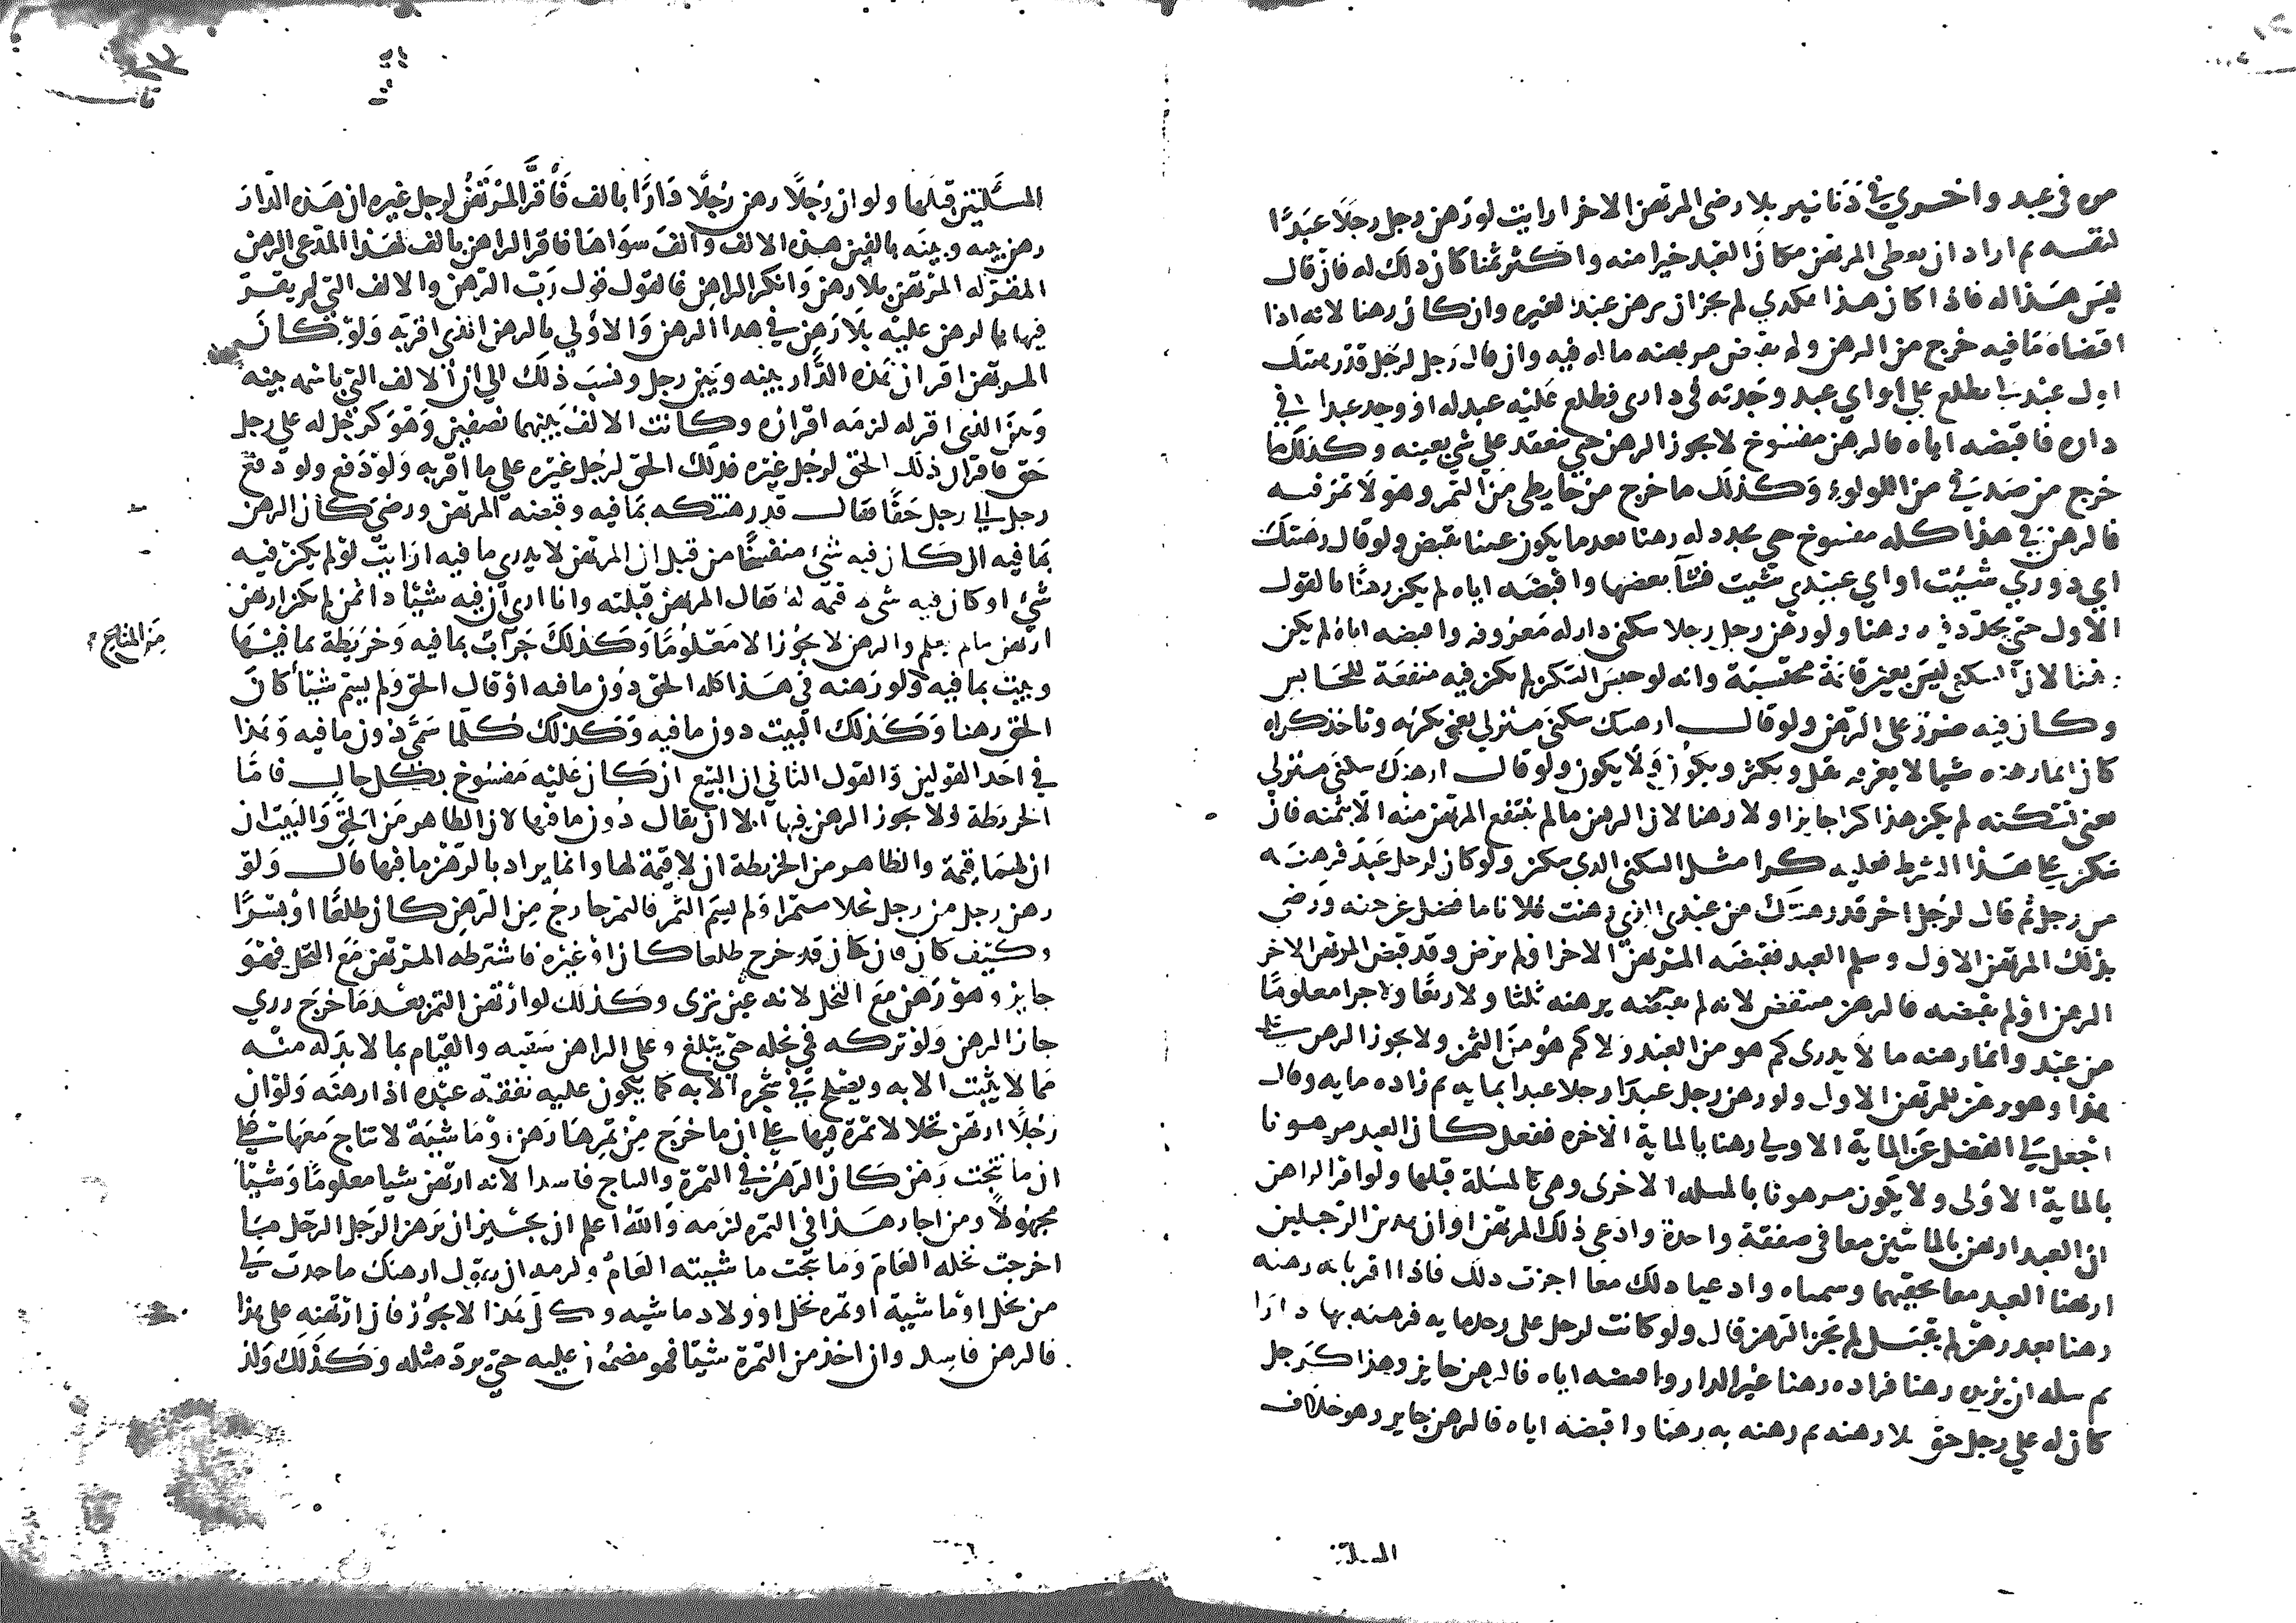 مره في عبد واخرى في دنانير بلا رضى المرتهن الاخر ارايت لو رهن رجل رجلا عبدا
لنفسه ثم اراد ان يعطى المرتهن مكان العبد خيرا منه واكثر ثمنا كان ذلك له فان قال
ليس هذا له فاذا كان هذا هكذي لم يجز ان يرهن عبدا لغيره وان كان رهنا لانه اذا
اقتضاه مما فيه خرج من الرهن ولم يقبض مرتهنه ماله فيه وان قال رجل لرجل قد رهنتك
اول عبد لي يطلع علي او اي عبد وجدته في دارى فطلع عليه عبد له او وجد عبدا في
داره فاقبضه اياه فالرهن مفسوخ لا يجوز الرهن حتى ينعقد على شي بعينه وكذلك ما
خرج من صدفي من اللولو وكذلك ما خرج من حايطى من التمر وهو لا تمر فيه
فالرهن في هذا كله مفسوخ حتى يجدد له رهنا بعد ما يكون عينا تقبض ولو قال رهنتك
اي دوري شئت او اي عبيدي شيت فشا بعضها واقبضه اياه لم يكن رهنا بالقول
الاول حتى يجدد فيه رهنا ولو رهن رجل رجلا سكنى دار له معروفه واقبضه اياه لم يكن
رهنا لان السكنى ليس بعين قائمة محتسبة وانه لو حبس السكن لم يكن فيه منفعة للحابس
وكان فيه ضرر على الرهن ولو قال ارهنك سكنى منزلي يعني يكريه وتاخذ كراه
كان انما رهنه شيا لا يعرفه يقل ويكثر ويكون ولا يكون ولو قال ارهنك سكنى منزلي
يعني تسكنه لم يكن هذا كرا جايزا ولا رهنا لان الرهن ما لم ينتفع المرتهن منه الا بثمنه فان
سكن على هذا الشرط فعليه كرا مثل السكنى الذي سكن ولو كان لرجل عبد فرهنه
من رجل ثم قال لرجل اخر قد رهنتك من عبدى الذي رهنت فلانا ما فضل عن رهنه ورضي
بذلك المرتهن الاول وسلم العبد فقبضه المرتهن الاخر او لم يرض وقد قبض المرتهن الاخر
الرهن او لم يقبضه فالرهن منتقض لانه لم يقبضه يرهنه ثلثا ولا ربعا ولا جزا معلوما
من عبد وانما رهنه ما لا يدرى كم هو من العبد ولا كم هو من الثمن ولا يجوز الرهن على
هذا وهو رهن للمرتهن الاول ولو رهن رجل رجلا عبدا بمايه ثم زاده مايه وقال
اجعل لي الفضل عن الماية الاولي رهنا بالماية الاخره ففعل كان العبد مرهونا
بالماية الاولى ولا يكون مرهونا بالمسله الاخرى وهي كالمسئلة قبلها ولو اقر الراهن
ان العبد ارتهن بالمائتين معا في صفقة واحدة وادعى ذلك المرتهن او ان هذين الرجلين
ارتهنا العبد معا بحقيهما وسمياه وادعيا ذلك معا اجزت ذلك فاذا اقر بانه رهنه
رهنا بعد رهن لم يقبل لم يجز الرهن قال ولو كانت لرجل على رجل مايه فرهنه بها دارا
ثم ساله ان يزيده رهنا فزاده رهنا غير الدار واقبضه اياه فالرهن جايز وهذا كرجل
كان له على رجل حق بلا رهنه ثم رهنه به رهنا واقبضه اياه فالرهن جايز وهو خلاف
المسئلتين
المسئلتين قبلها ولو ان رجلا رهن رجلا دارا بالف فاقر المرتهن لرجل غيره ان هذه الدار
رهن بينه وبينه بالفين هذه الالف والف سواها فاقر الراهن بالف لهذا المدعى الرهن
المقر له المرتهن بلا رهن وانكر الراهن فالقول قول رب الرهن والالف التي لم يقر
فيها بالرهن عليه بلا رهن في هذا الرهن والاولي بالرهن الذي اقر به ولو كان
المرتهن اقر ان هذه الدار بينه وبين رجل ونسب ذلك الي ان الالف التي باسمه بينه
وبين الذي اقر له لزمه اقراره وكانت الالف بينهما نصفين وهو كرجل له على رجل
حق فاقر ان ذلك الحق لرجل غيره فذلك الحق لرجل غيره على ما اقر به ولو دفع ولو دفع
رجل الى رجل حقا فقال قد رهنتكه بما فيه وقبضه المرتهن ورضي كان الرهن
بما فيه ان كان فيه شئ منفسخا من قبل ان المرتهن لا يدري ما فيه ارايت لو لم يكن فيه
شئ او كان فيه شي لا قيمه له فقال المرتهن قبلته وانا ارى ان فيه شيئا ذا ثمن لم يكن ارتهن
ارتهن ما لم يعلم والرهن لا يجوز الا معلوما وكذلك جراب بما فيه وخريطة بما فيها
وبيت بما فيه ولو رهنه في هذا كله الحق دون ما فيه او قال الحق ولم يسم شيئا كان
الحق رهنا وكذلك البيت دون ما فيه وكذلك كلما سمى دون ما فيه وهذا
في احد القولين والقول الثاني ان البيع ان كان عليه مفسوخ بكل حال فاما
الخريطة ولا يجوز الرهن فيها الا ان يقال دون ما فيها لان الظاهر من الحق والبيت ان
ان لهما قيمة والظاهر من الخريطة ان لا قيمة لها وانما يراد بالرهن ما فيها قال ولو
رهن رجل من رجل نخلا مثمرا ولم يسم الثمر فالثمر خارج من الرهن كان طلعا او بسرا
وكيف كان فان كان قد خرج طلعا كان او غيره فاشترطه المرتهن مع النخل فهو
جايز وهو رهن مع النخل لانه عين ترى وكذلك لو ارتهن الثمر بعد ما خرج وري
جاز الرهن ولو تركه في نخله حتى يبلغ وعلى الراهن سقيه والقيام بما لا بد له منه
مما لا يثبت الا به ويصلح في شجره الا به كما يكون عليه نفقة عبده اذا رهنه ولو ان
رجلا ارتهن نخلا لا ثمرة فيها على ان ما خرج من ثمرها رهن وماشية لا نتاج معها على
ان ما نتجت رهن كان الرهن في الثمرة والنتاج فاسدا لانه ارتهن شيا معلوما وشيئا
مجهولا ومن اجاز هذا في الثمره لزمه والله اعلم ان يجيز ان يرهن الرجل الرجل ما
اخرجت نخله العام وما نتجت ماشيته العام ولزمه ان يقول ارهنك ما حدث لي
من نخل او ماشية او ثمره نخل او ولاد ماشيه وكل هذا لا يجوز فان ارتهنه على هذا
فالرهن فاسد وان اخذ من الثمرة شيئا فهو مضمون عليه حتى يرد مثله وكذلك ولد
من النتاج